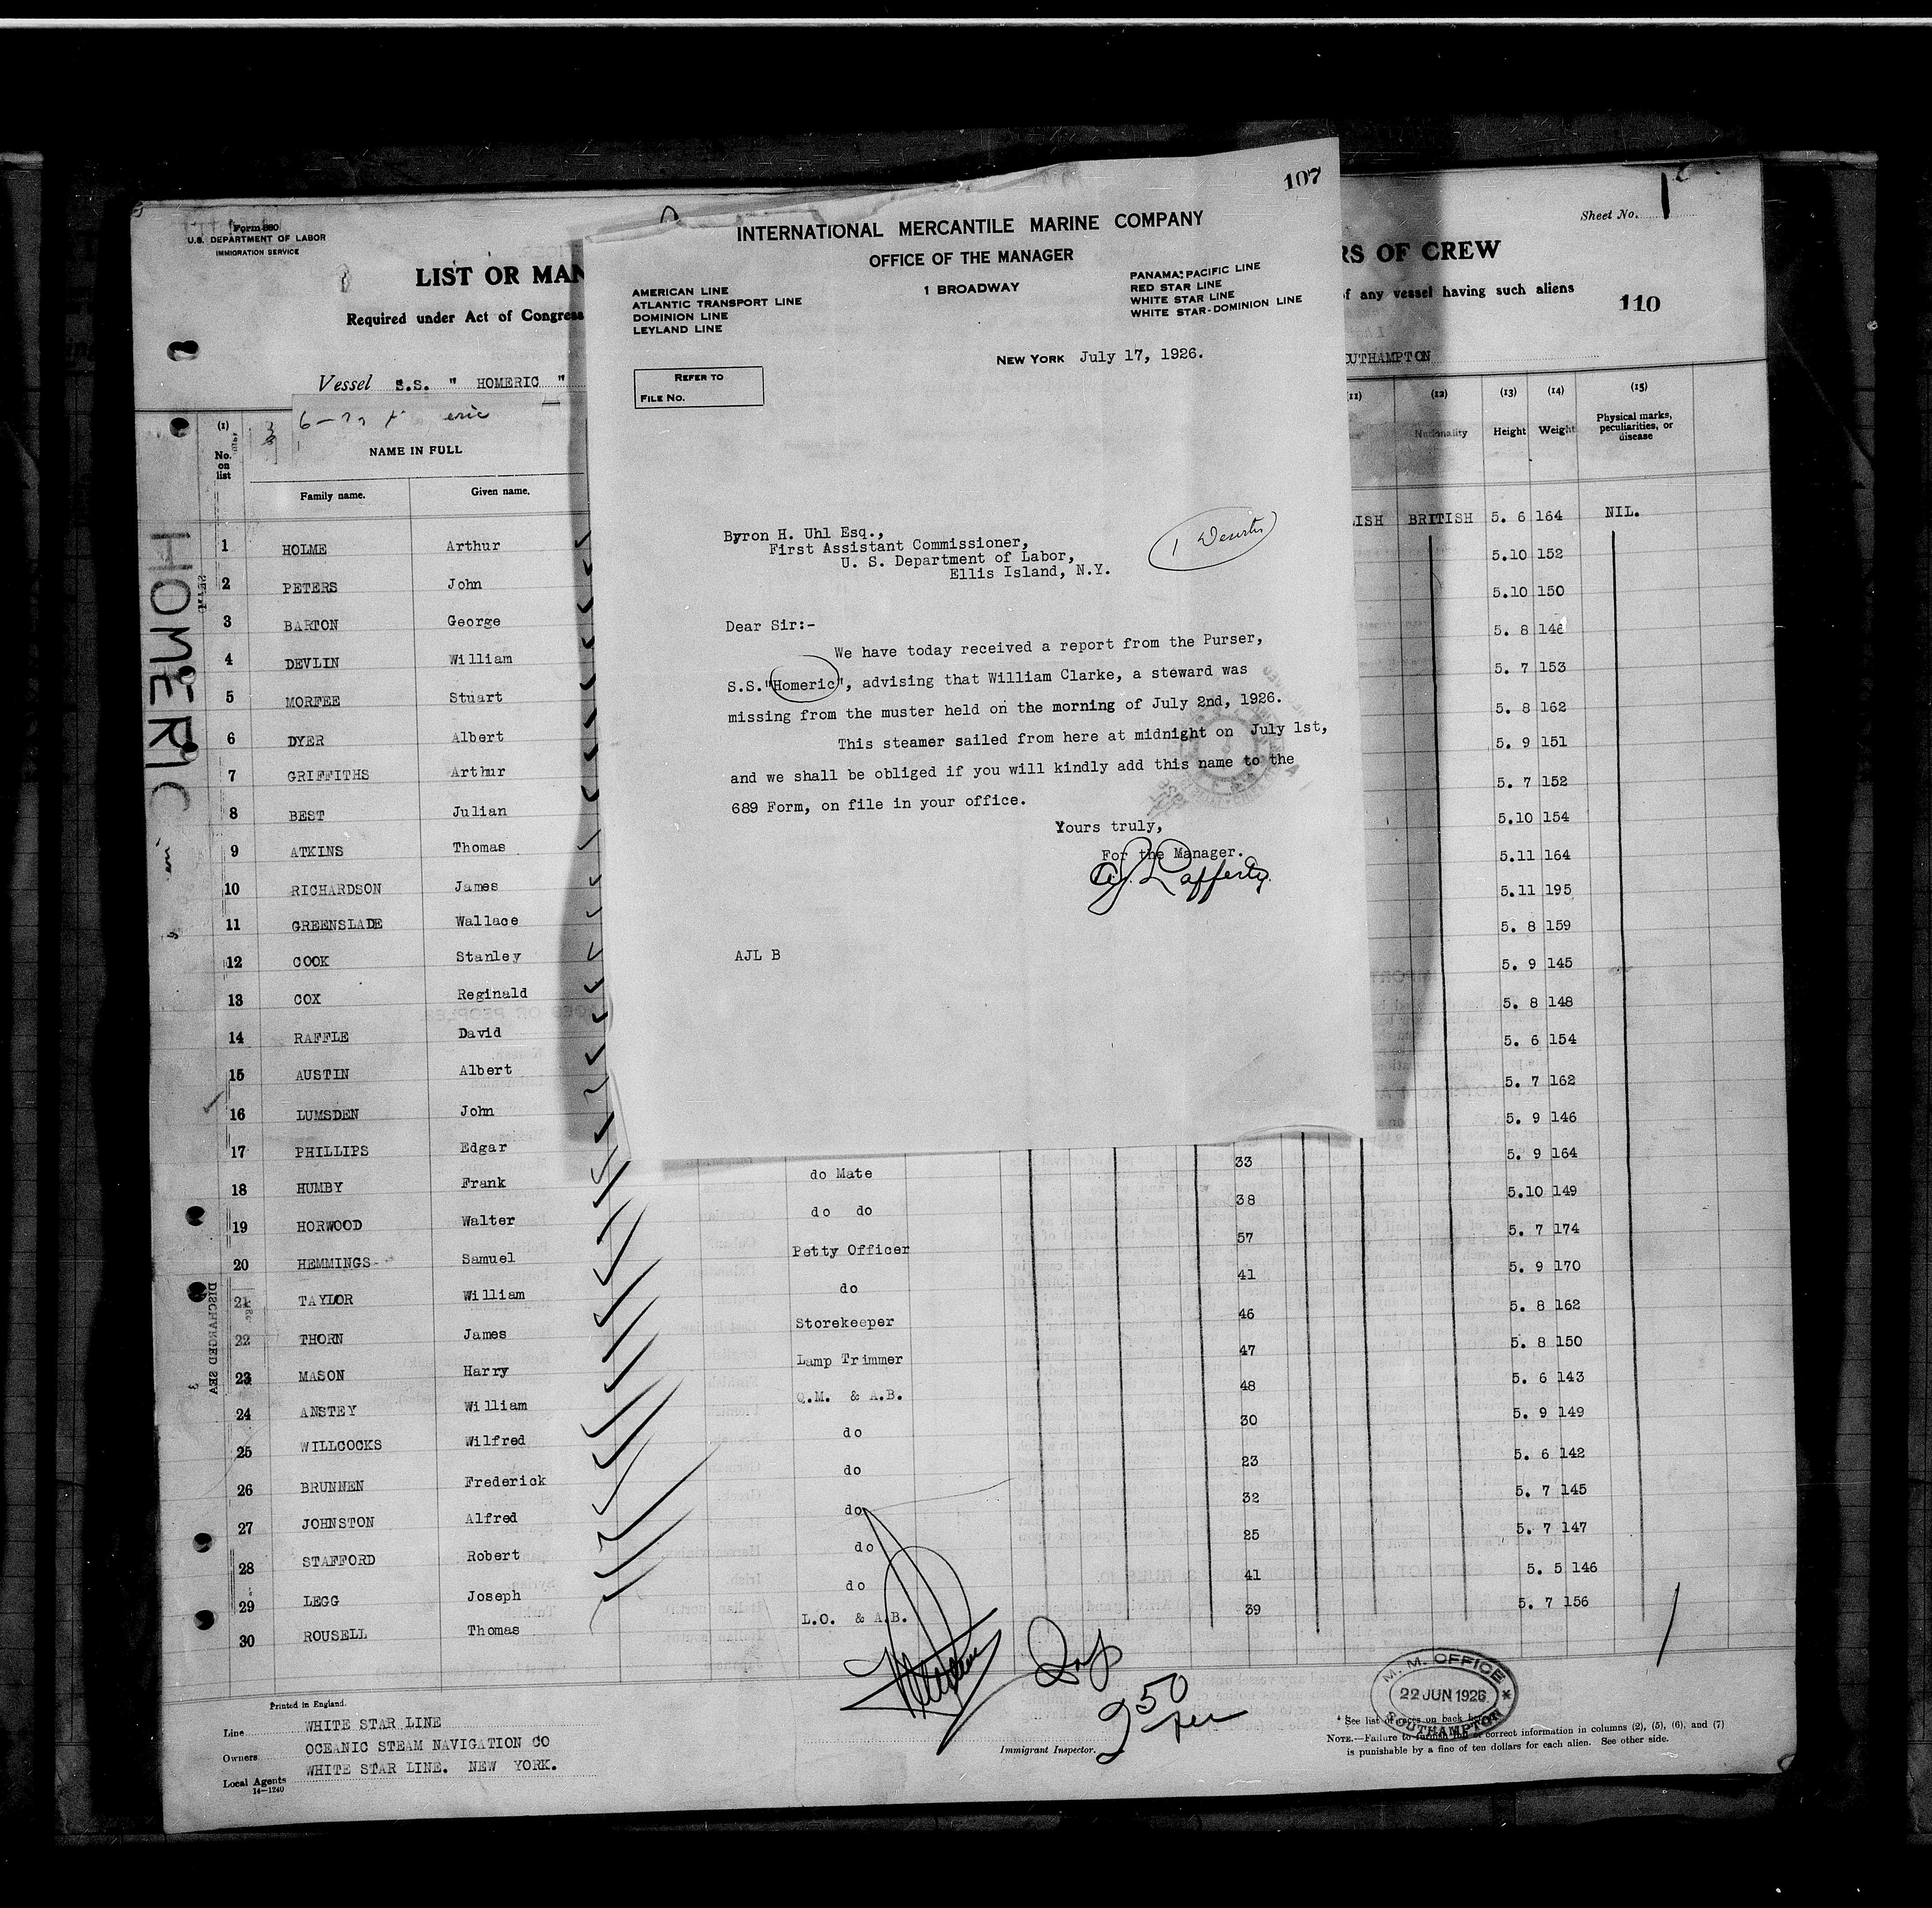 107
INTERNATIONAL MERCANTILE MARINE COMPANY
OFFICE OF THE MANAGER
1 BROADWAY
AMERICAN LINE
ATLANTIC TRANSPORT LINE
DOMINION LINE
LEYLAND LINE
PANAMA-PACIFIC LINE
RED STAR LINE
WHITE STAR LINE
WHITE STAR-DOMINION LINE
NEW YORK July 17, 1926.
REFER TO
FILE NO.
Byron H. Uhl Esq.,
First Assistant Commissioner,
U. S. Department of Labor,
Ellis Island, N.Y.
Dear Sir:-
We have today received a report from the Purser,
S.S."Homeric", advising that William Clarke, a steward was
missing from the muster held on the morning of July 2nd, 1926.
This steamer sailed from here at midnight on July 1st,
and we shall be obliged if you will kindly add this name to the
689 Form, on file in your office.
Yours truly,
For the Manager.
AJL B
Form 680
U.S. DEPARTMENT OF LABOR
IMMIGRATION SERVICE
Sheet No. 1
LIST OR MAN
RS OF CREW
Required under Act of Congress
of any vessel having such aliens
110
Vessel S.S. " HOMERIC "
OUTHAMPTON
HOMERIC
(1) (12) (13) (14) (15)
No. on list
NAME IN FULL
Family name. Given name.
Nationality Height Weight Physical marks, peculiarities, or disease
1 HOLME Arthur LISH BRITISH 5. 6 164 NIL.
2 PETERS John 5.10 152
3 BARTON George 5.10 150
4 DEVLIN William 5. 8
5 MORFEE Stuart 5. 7 153
6 DYER Albert 5. 8 162
7 GRIFFITHS Arthur 5. 9 151
8 BEST Julian 5. 7 152
9 ATKINS Thomas 5.10 154
10 RICHARDSON James 5.11 164
11 GREENSLADE Wallace 5.11 195
12 COOK Stanley 5. 8 159
13 COX Reginald 5. 9 145
14 RAFFLE David 5. 8 148
15 AUSTIN Albert 5. 6 154
16 LUMSDEN John 5. 7 162
17 PHILLIPS Edgar 5. 9 146
18 HUMBY Frank do Mate 33 5. 9 164
19 HORWOOD Walter do do 38 5.10 149
20 HEMMINGS Samuel Petty Officer 57 5. 7 174
21 TAYLOR William do 41 5. 9 170
22 THORN James Storekeeper 46 5. 8 162
23 MASON Harry Lamp Trimmer 47 5. 8 150
24 ANSTEY William Q.M. & A.B. 48 5. 6 143
25 WILLCOCKS Wilfred do 30 5. 9 149
26 BRUNNEN Frederick do 23 5. 6 142
27 JOHNSTON Alfred do 32 5. 7 145
28 STAFFORD Robert do 25 5. 7 147
29 LEGG Joseph do 41 5. 5 146
30 ROUSELL Thomas L.O. & A.B. 39 5. 7 156
DISCHARGED SEA
Printed in England.
Line WHITE STAR LINE
Owners OCEANIC STEAM NAVIGATION CO
Local Agents WHITE STAR LINE. NEW YORK.
14-1240
Immigrant Inspector.
M. M. OFFICE
22 JUN 1926
SOUTHAMPTON
* See list of races on back
NOTE.—Failure to furnish full or correct information in columns (2), (5), (6), and (7)
is punishable by a fine of ten dollars for each alien. See other side.